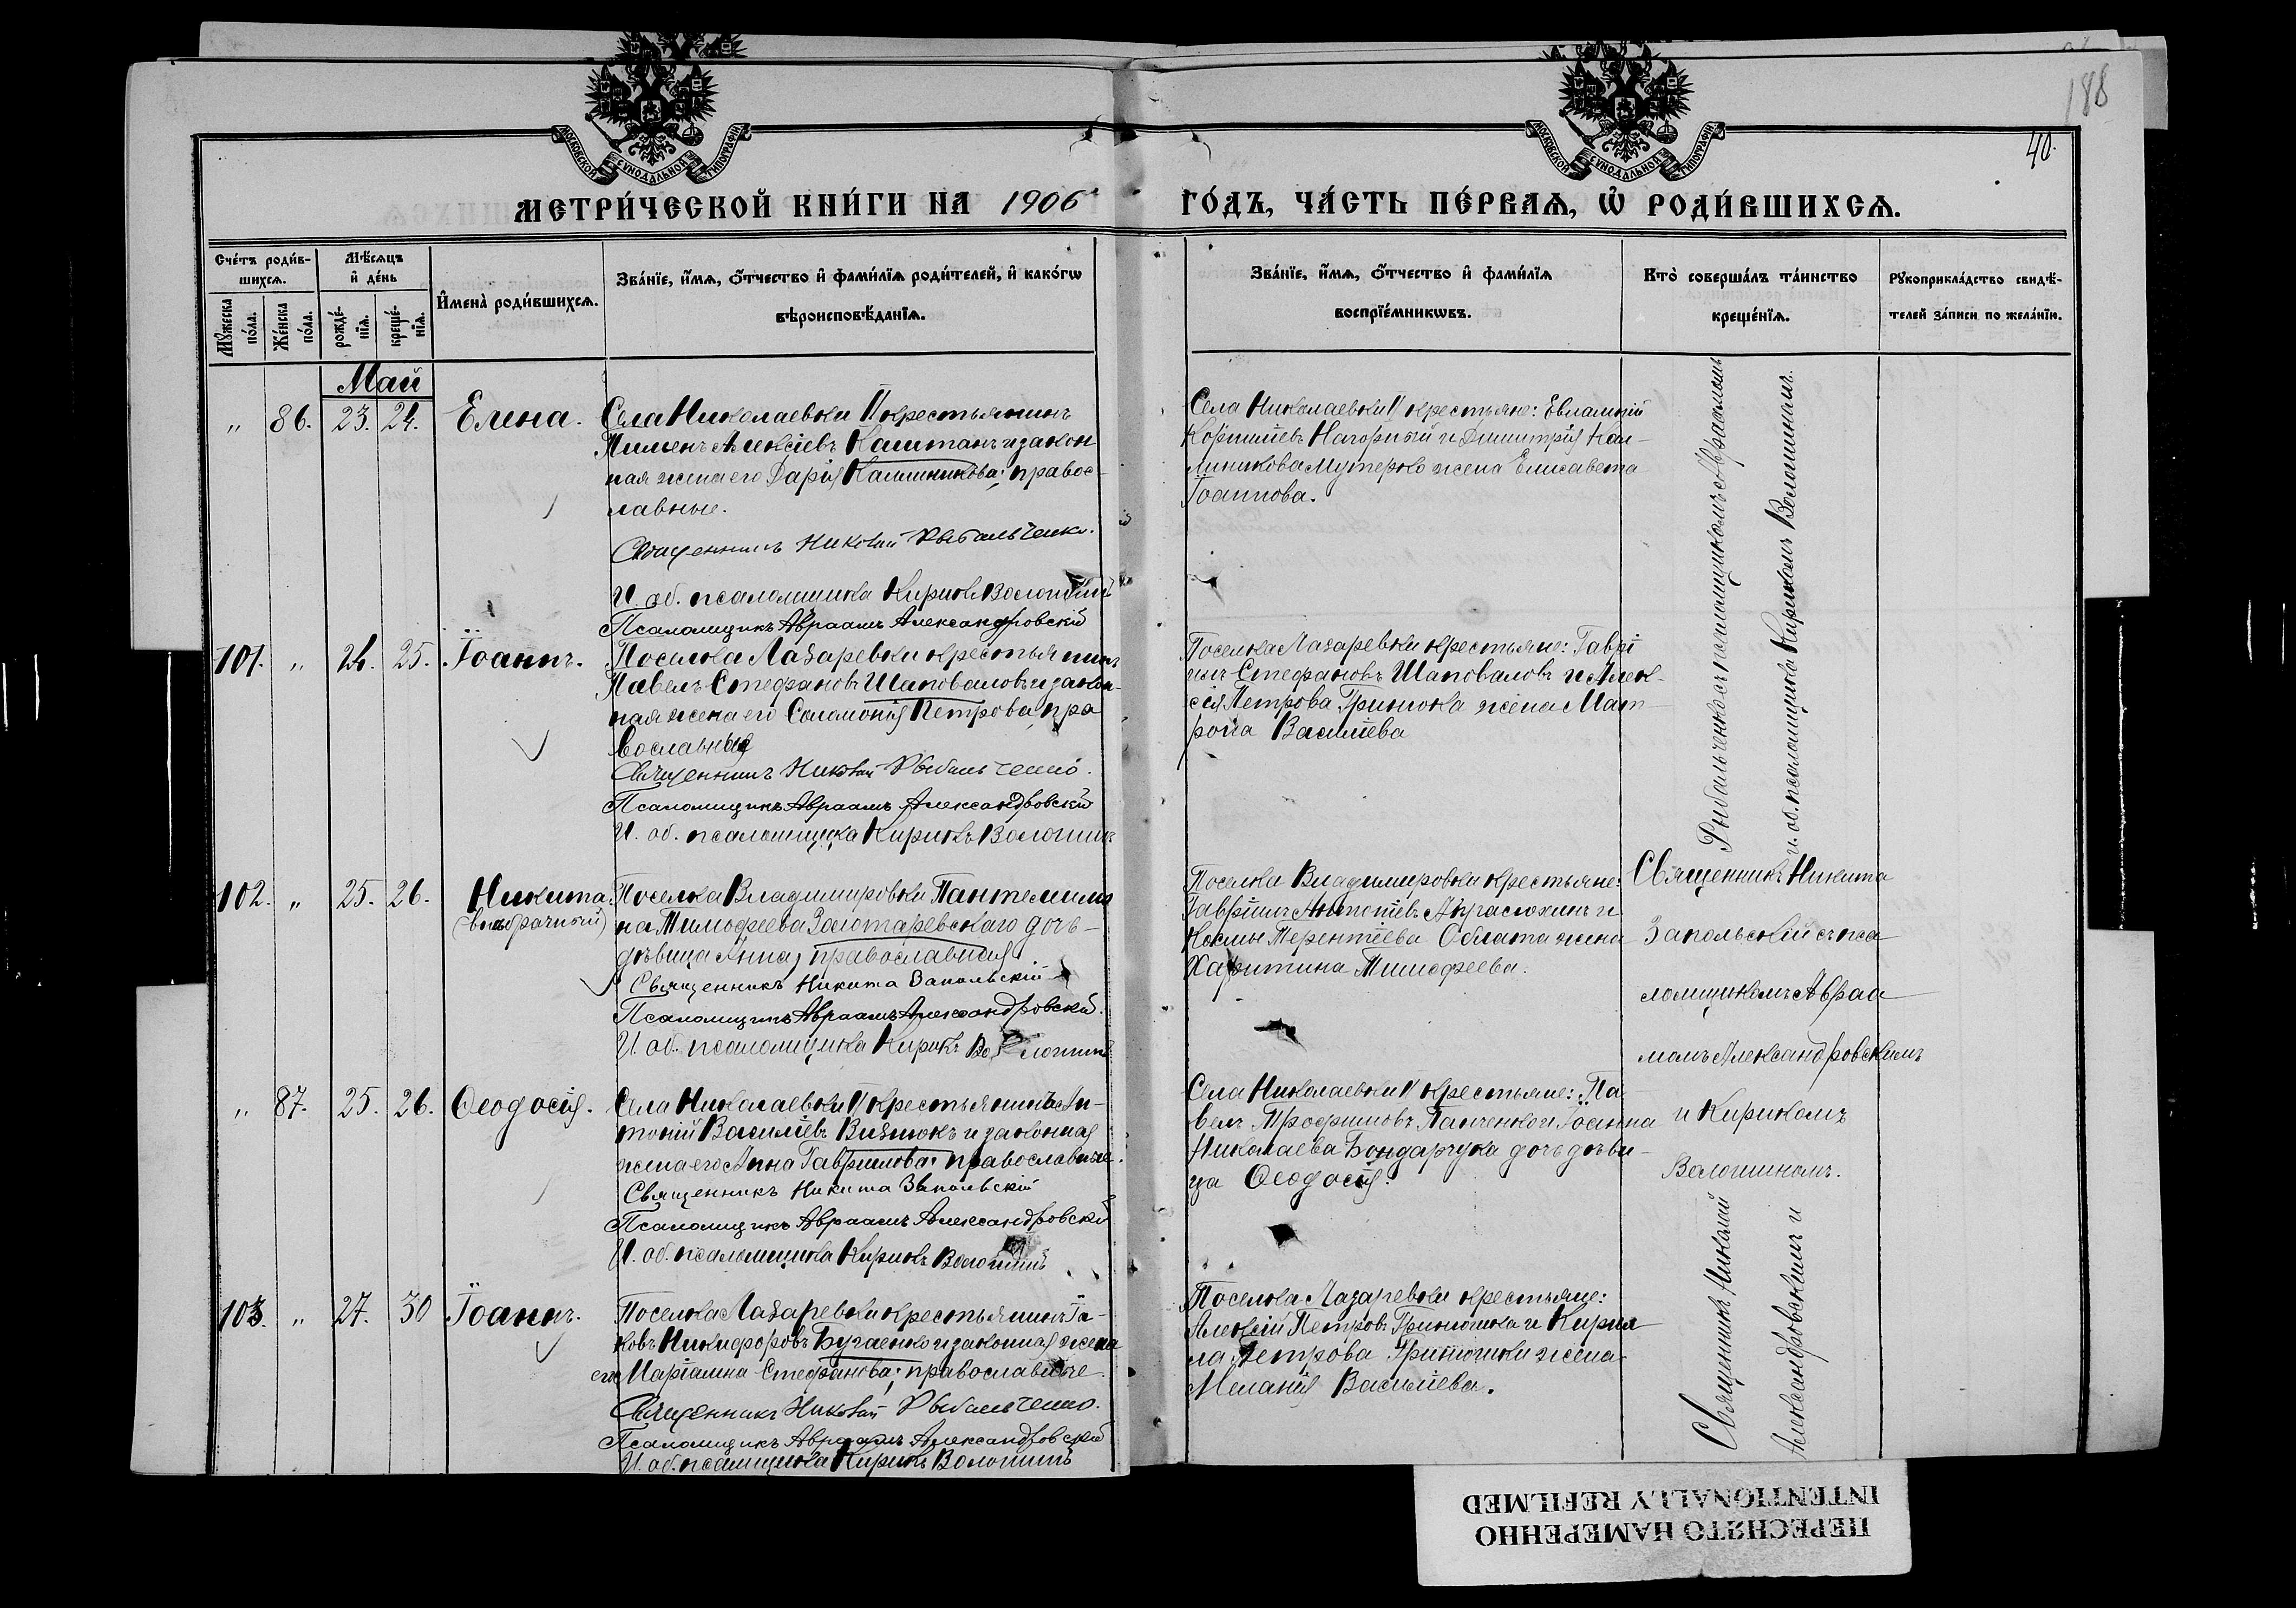 188
40.
МОСКОВСКОЙ СУНОДАЛЬНОЙ ТИПОГРАФІИ
МОСКОВСКОЙ СУНОДАЛЬНОЙ ТИПОГРАФІИ
МЕТРИ́ЧЕСКОЙ КНИ́ГИ НА 1906 ГО́ДЪ, ЧА́СТЬ ПЕ́РВАѦ, Ѡ҆ РОДИ́ВШИХСѦ.
Сче́тъ роди́в-
шихсѧ.
Мꙋ́жеска
по́ла.
Же́нска
по́ла.
Мѣ́сѧцъ
и҆ де́нь
рожде́-
нїѧ.
креще́-
нїѧ.
И҆мена̀ роди́вшихсѧ.
Зва́нїе, и҆́мѧ, ѻ҆́тчество и҆ фами́лїѧ роди́телей, и҆ како́гѡ
вѣроисповѣ́данїѧ.
Зва́нїе, и҆́мѧ, ѻ҆́тчество и҆ фами́лїѧ
воспрїе́мникѡвъ.
Кто̀ соверша́лъ та́инство
креще́нїѧ.
Рꙋкоприкла́дство свидѣ́-
телей за́писи по жела́нїю.
Май
„ 86. 23. 24. Елена.
Села Николаевки II крестьянинъ
Пименъ Алексіевъ Каштанъ и закон
ная жена его Дарія Калинникова; правос-
лавные.
Священникъ Николай Рыбальченко.
И. об. псаломщика Кирикъ Волошинъ
Псаломщикъ Авраамъ Александровскій
Села Николаевки II крестьяне: Евлампій
Корниліевъ Нагорный и Димитрія Кал-
линикова жена Елисавета
Іоаннова.
Рыбальченко съ псаломщикомъ Авраамомъ
и. об. псаломщика Кирикомъ Волошинымъ.
101. „ 24. 25. Іоаннъ.
Поселка Лазаревки крестьянинъ
Павелъ Стефановъ Шаповаловъ и закон-
ная жена его Соломонія Петрова, пра
вославные
Священникъ Николай Рыбальченко.
Псаломщикъ Авраамъ Александровскій
И. об. псаломщика Кирикъ Волошинъ
Поселка Лазаревки крестьяне: Гаврі
илъ Стефановъ Шаповаловъ и Алек-
сія Петрова Гринюка жена Мат-
рона Василіева
102. „ 25. 26. Никита.
(внѣбрачный)
Поселка Владимировки Пантелеимо
на Тимофеева Золотаревскаго дочь-
дѣвица Анна, православная
Священникъ Никита Запольскій
Псаломщикъ Авраамъ Александровскій.
И. об. псаломщика Кирикъ Волошинъ
Поселка Владимировки крестьяне:
Гавріилъ Антоніевъ и
Космы Терентіева жена
Харитина Тимофеева.
Священникъ Никита
Запольскій съ пса
ломщикомъ Авраа
момъ Александровскимъ
и Кирикомъ
Волошиномъ.
„ 87. 25. 26. Ѳеодосія.
Села Николаевки II крестьянинъ Ан-
тоній Василіевъ Визнюкъ и законная
жена его Анна Гавріилова; православные.
Священникъ Никита Запольскій
Псаломщикъ Авраамъ Александровскій
И. об. псаломщика Кирикъ Волошинъ
Села Николаевки II крестьяне: Па-
велъ Трофимовъ Панченко и Іоанна
Николаева Бондарчука дочь дѣви-
ца Ѳеодосія.
103. „ 27. 30 Іоаннъ.
Поселка Лазаревки крестьянинъ Іа-
ковъ Никифоровъ Бугаенко и законная жена
его Маріамна Стефанова; православные.
Священникъ Николай Рыбальченко.
Псаломщикъ Авраамъ Александровскій
И. об. псаломщика Кирикъ Волошинъ
Поселка Лазаревки крестьяне:
Алексій Петровъ и Кирил
ла Петрова жена
Меланія Василіева.
Священникъ Николай
Александровскимъ и
ПЕРЕСНЯТО НАМЕРЕННО
INTENTIONALLY REFILMED